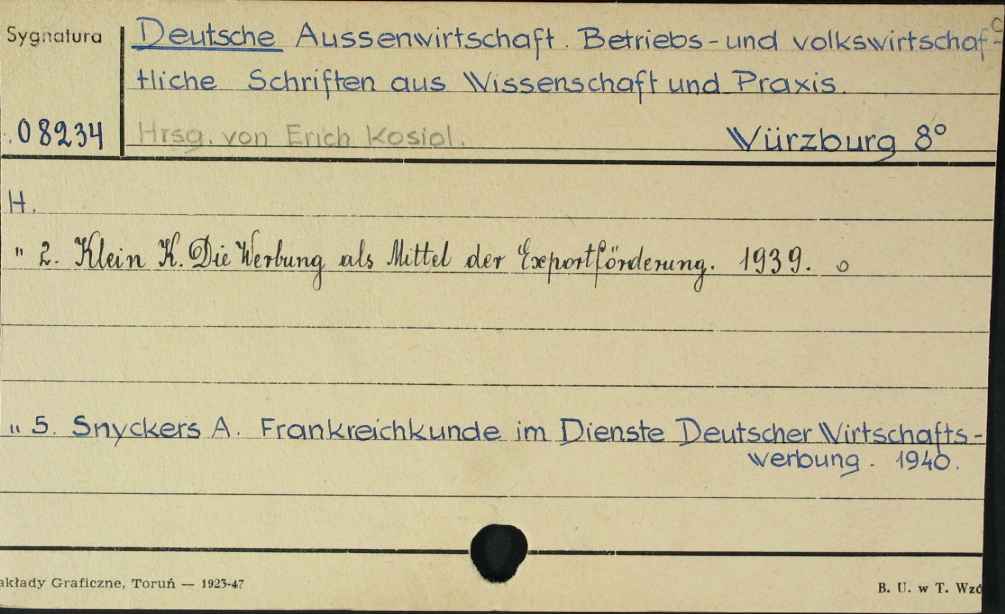 Sygnatura
Deutsche Aussenwirtschaft. Betriebs-und volkswirtschaf-
tliche Schriften aus Wissenschaft und Praxis.
08234
Hrsg. von Erich Kosiol.
Würzburg 8°
H.
" 2. Klein K. Die Werbung als Mittel der Exportförderung. 1939. o
" 5. Snyckers A. Frankreichkunde im Dienste Deutscher Wirtschafts-
werbung. 1940.
akłady Graficzne, Toruń — 1923-47
B. U. w T. Wzó